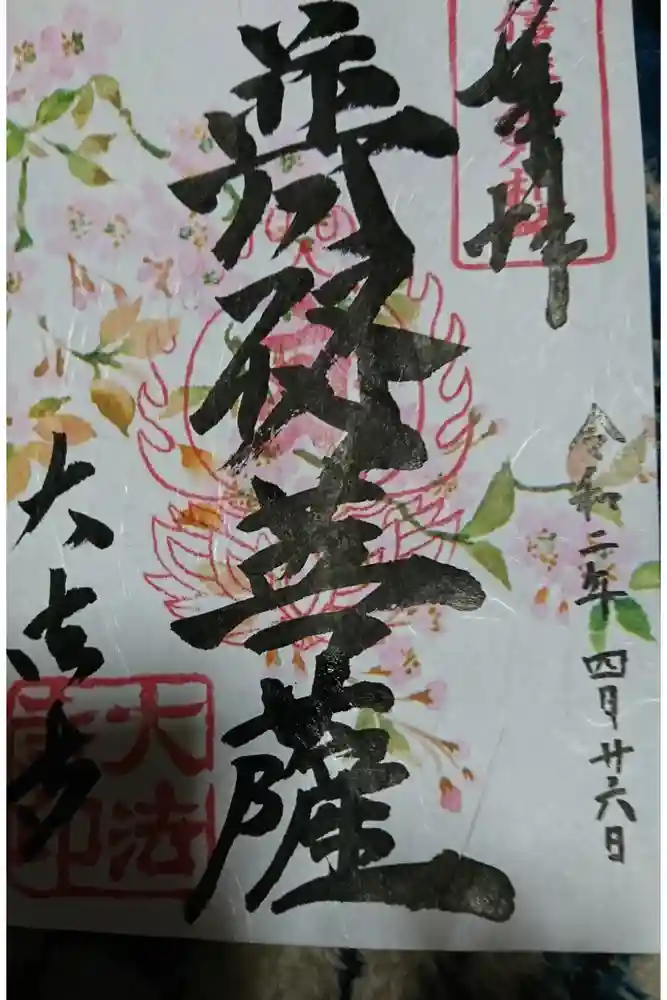 奉拝
令和二年 四月廿六日
菩薩
大法寺
大法寺印